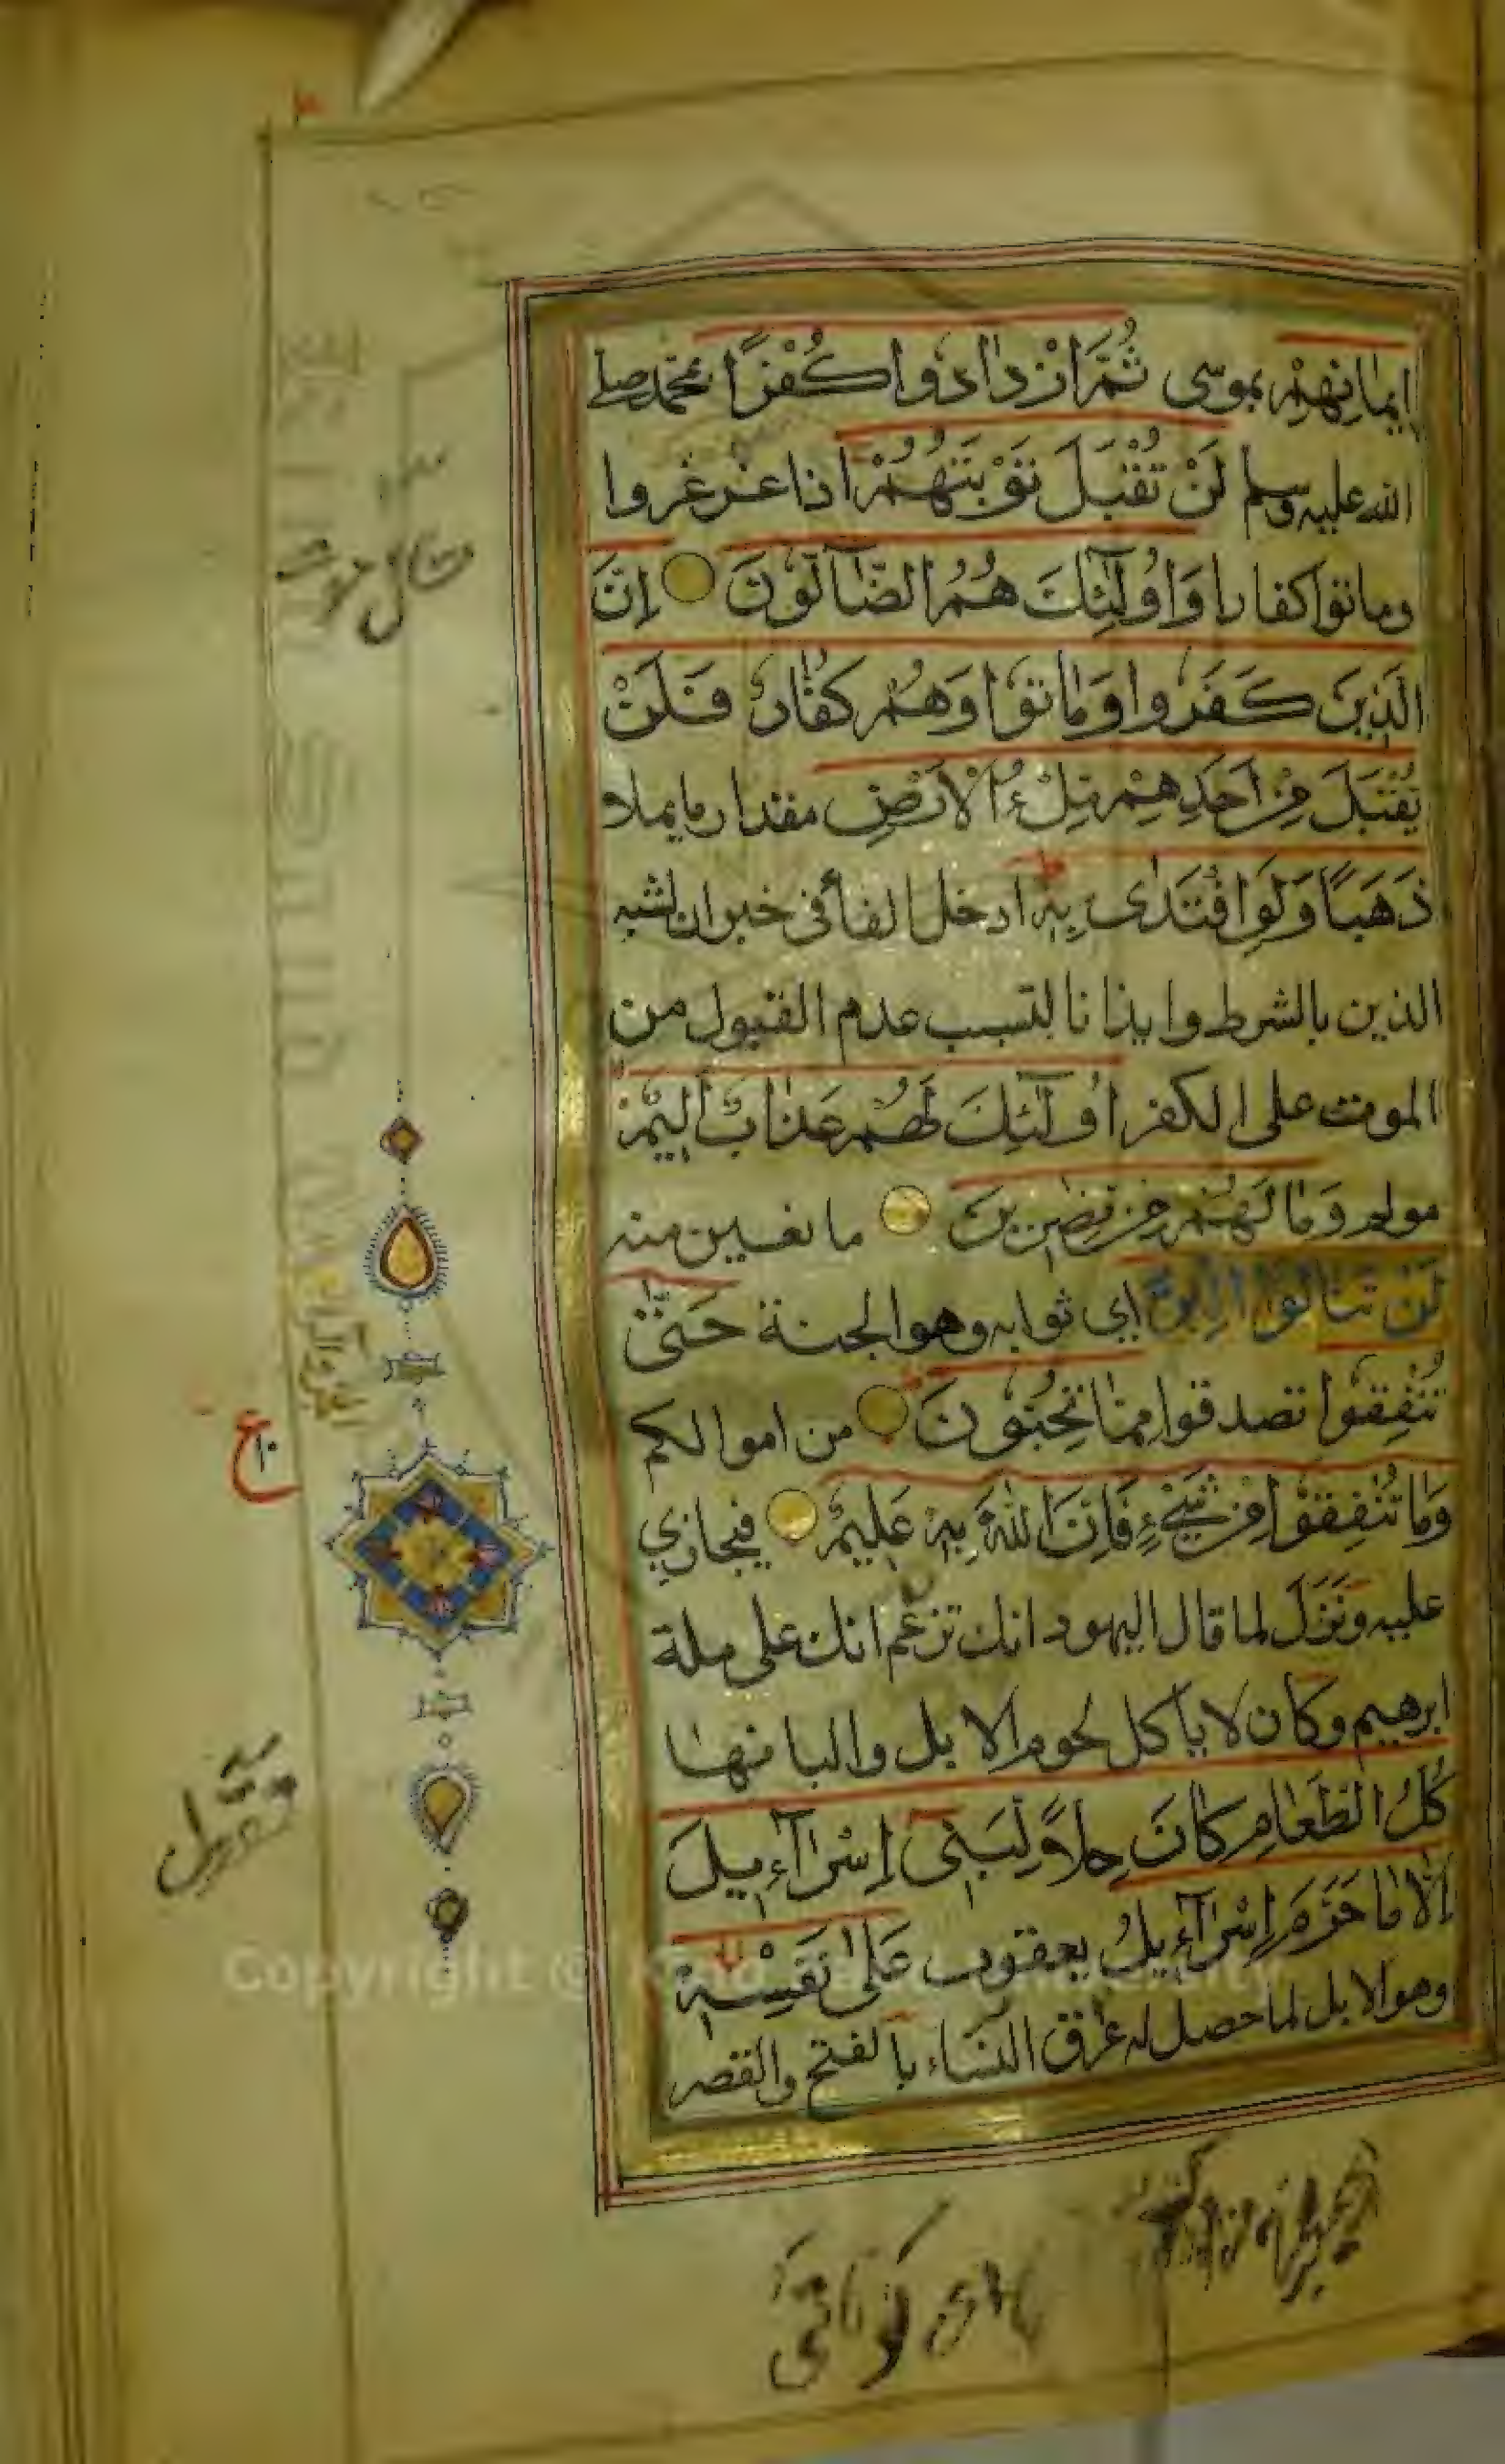 اِيمَانِهِمْ بموسى ثُمَّ ازْدَادُوا كُفْرًا بمحمد صلى
الله عليه وسلم لَنْ تُقْبَلَ تَوْبَتُهُمْ اذا غرغروا
وماتوا كفارا وَاُولٰٓئِكَ هُمُ الضَّآلُّونَ اِنَّ
الَّذِينَ كَفَرُوا وَمَاتُوا وَهُمْ كُفَّارٌ فَلَنْ
يُقْبَلَ مِنْ اَحَدِهِمْ مِلْءُ الْاَرْضِ مقدار ما يملاء
ذَهَبًا وَلَوِ افْتَدٰى بِهٖ ادخل الفاء في خبر ان لشبه
الذين بالشرط وايذانا لتسبب عدم القبول من
الموت على الكفر اُولٰٓئِكَ لَهُمْ عَذَابٌ اَلِيمٌ
مولم وَمَا لَهُمْ مِنْ نٰصِرِينَ مانعين منه
لَنْ تَنَالُوا الْبِرَّ اي ثوابه وهو الجنة حَتّٰى
تُنْفِقُوا تصدقوا مِمَّا تُحِبُّونَ من اموالكم
وَمَا تُنْفِقُوا مِنْ شَيْءٍ فَاِنَّ اللّٰهَ بِهٖ عَلِيمٌ فيجازي
عليه ونَزَل لما قال اليهود انك تزعم انك على ملة
ابرهيم وكان لا يأكل لحوم الابل والبانها
كُلُّ الطَّعَامِ كَانَ حِلًّا لِبَنِى اِسْرَآءِيلَ
اِلَّا مَا حَرَّمَ اِسْرَآءِيلُ يعقوب عَلٰى نَفْسِهٖ
وهو الابل لما حصل له عرق النساء بالفتح والقصر
ع
١٠
Copyright ©